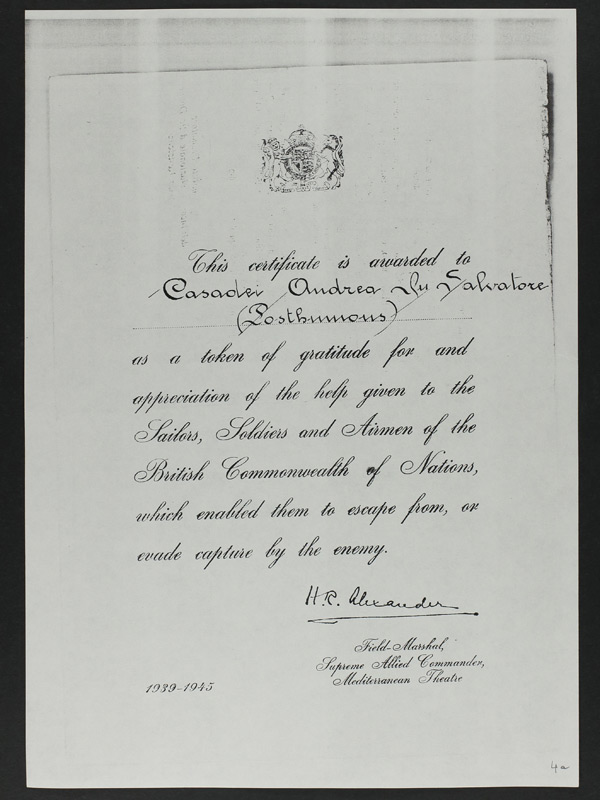 This certificate is awarded to
Casadei Andrea Fu Salvatore
(Posthumous)
as a token of gratitude for and
appreciation of the help given to the
Sailors, Soldiers and Airmen of the
British Commonwealth of Nations,
which enabled them to escape from, or
evade capture by the enemy.
H.R. Alexander
Field-Marshal,
Supreme Allied Commander,
Mediterranean Theatre
1939-1945
4a